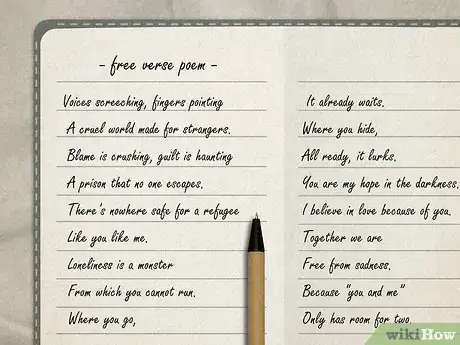 - free verse poem -
Voices screeching, fingers pointing
A cruel world made for strangers.
Blame is crushing, guilt is haunting
A prison that no one escapes.
There's nowhere safe for a refugee
Like you like me.
Loneliness is a monster
From which you cannot run.
Where you go,
It already waits.
Where you hide,
All ready, it lurks.
You are my hope in the darkness.
I believe in love because of you.
Together we are
Free from sadness.
Because "you and me"
Only has room for two.
wikiHow